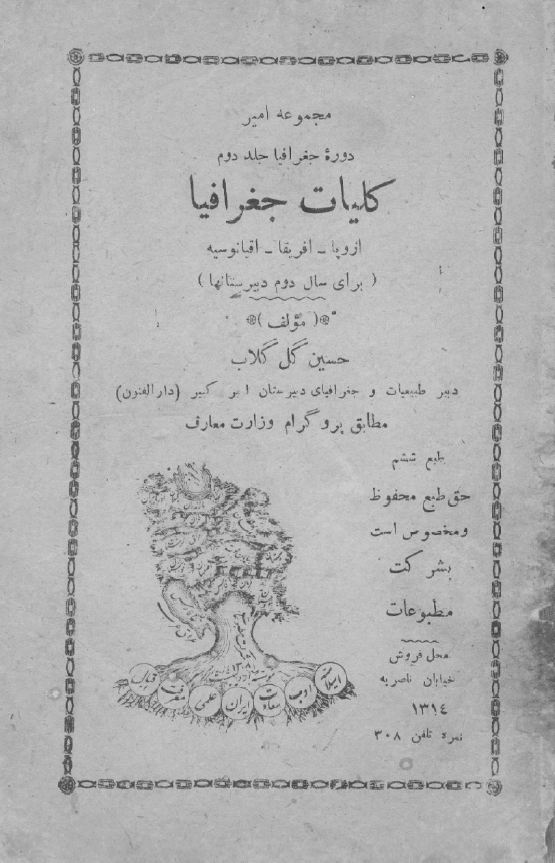 مجموعه امیر
دورهٔ جغرافیا جلد دوم
کلیات جغرافیا
اروپا ـ افریقا ـ اقیانوسیه
( برای سال دوم دبیرستانها )
( مؤلف )
حسین گل گلاب
دبیر طبیعیات و جغرافیای دبیرستان امیر کبیر (دارالفنون)
مطابق پروگرام وزارت معارف
طبع ششم
حق طبع محفوظ
ومخصوص است
بشرکت
مطبوعات
محل فروش
خیابان ناصریه
۱۳۱٤
نمره تلفن ۳۰۸
اقبال
معرفت
علمی
ایران
سعادت
ادب
اسلامیه